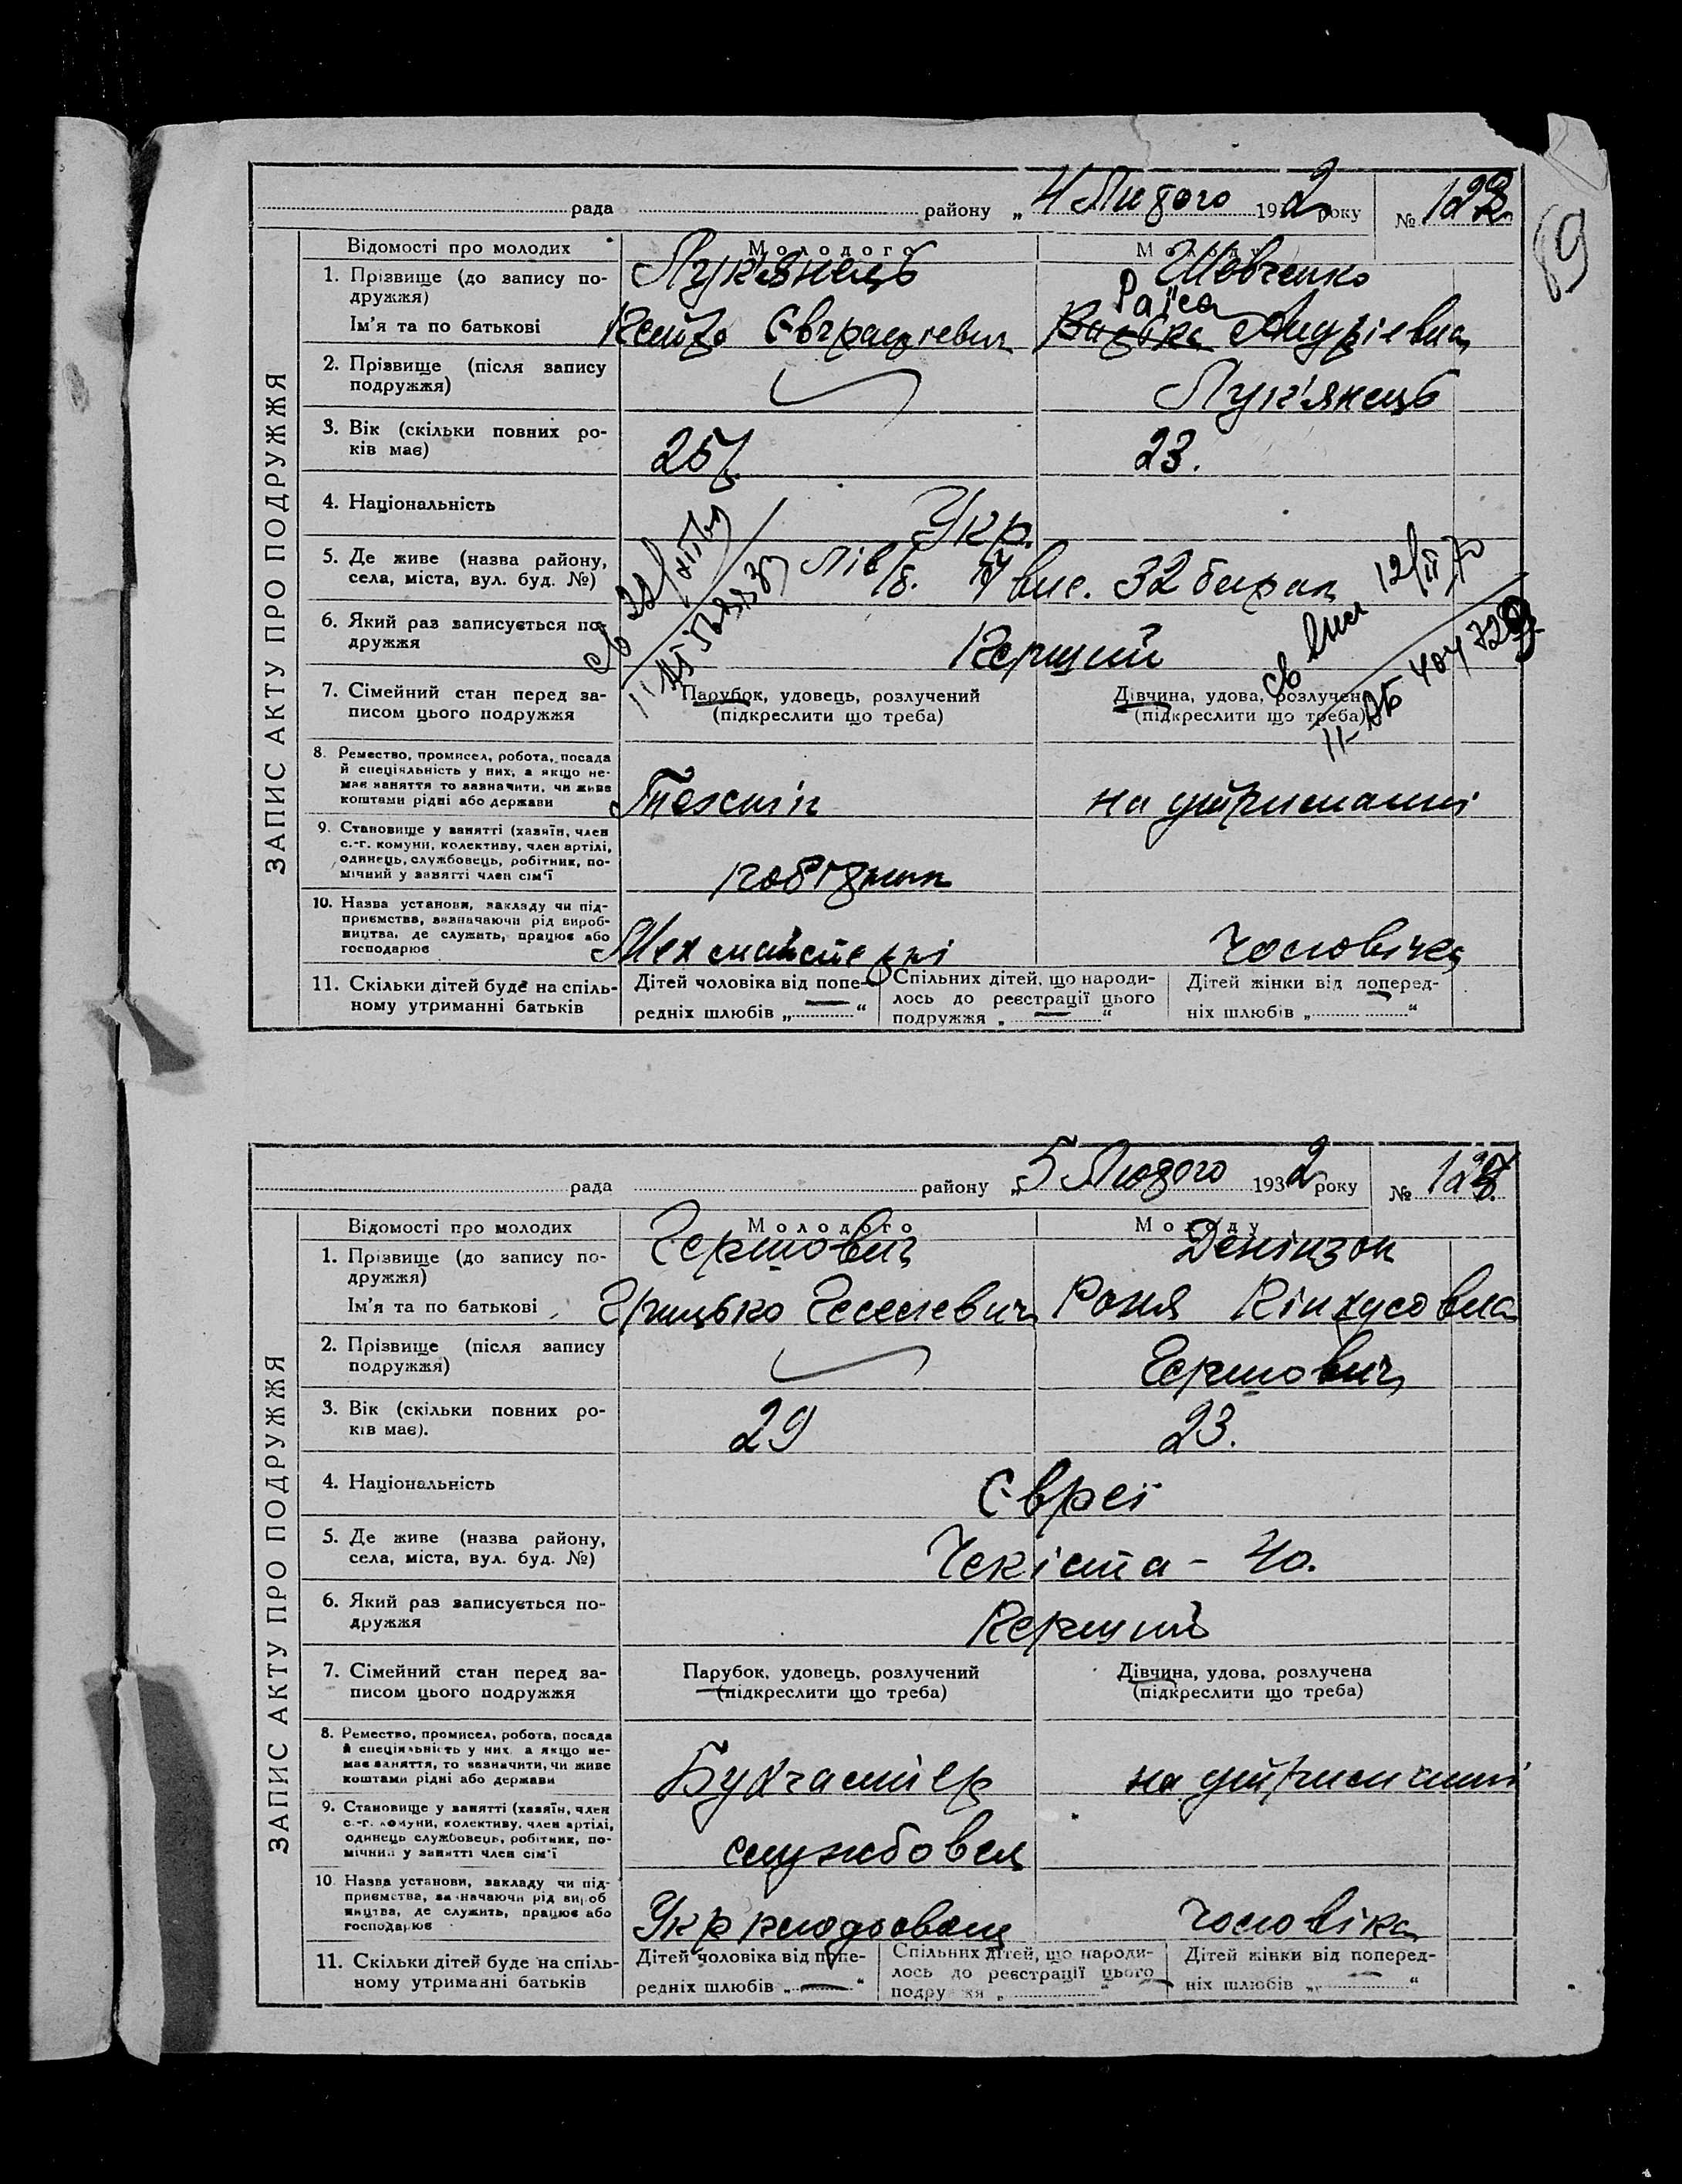 69
рада району „4 Лютого 1932 року № 122
ЗАПИС АКТУ ПРО ПОДРУЖЖЯ
Відомості про молодих Молодого Молоду
1. Прізвище (до запису по-
дружжя) Лук'янець Шевченко
Раїса
Ім'я та по батькові Андріївна
2. Прізвище (після запису
подружжя) Лук'янець
3. Вік (скільки повних ро-
ків має) 25 23.
4. Національність Укр.
5. Де живе (назва району,
села, міста, вул. буд. №) 32 барак
6. Який раз записується по-
дружжя Перший
7. Сімейний стан перед за-
писом цього подружжя
Парубок, удовець, розлучений
(підкреслити що треба)
Дівчина, удова, розлучена
(підкреслити що треба)
8. Ремество, промисел, робота, посада
й спеціяльність у них, а якщо не-
має заняття то зазначити, чи живе
коштами рідні або держави
на утриманні
9. Становище у занятті (хазяїн, член
с.-г. комуни, колективу, член артілі,
одинець, службовець, робітник, по-
мічний у занятті член сім'ї
робітник
10. Назва установи, закладу чи під-
приємства, зазначаючи рід вироб-
ництва, де служить, працює або
господарює
Мех майстерні чоловіка
11. Скільки дітей буде на спіль-
ному утриманні батьків
Дітей чоловіка від попе-
редніх шлюбів „ — “
Спільних дітей, що народи-
лось до реєстрації цього
подружжя „ — “
Дітей жінки від поперед-
ніх шлюбів „ — “
рада району „5 Лютого 1932 року №
ЗАПИС АКТУ ПРО ПОДРУЖЖЯ
Відомості про молодих Молодого Молоду
1. Прізвище (до запису по-
дружжя) Гершович Денінзон
Ім'я та по батькові Грицько Роня
2. Прізвище (після запису
подружжя) Гершович
3. Вік (скільки повних ро-
ків має). 29 23.
4. Національність Євреї
5. Де живе (назва району,
села, міста, вул. буд. №) Чекіста - 40.
6. Який раз записується по-
дружжя Перший
7. Сімейний стан перед за-
писом цього подружжя
Парубок, удовець, розлучений
(підкреслити що треба)
Дівчина, удова, розлучена
(підкреслити що треба)
8. Ремество, промисел, робота, посада
й спеціяльність у них, а якщо не-
має заняття, то зазначити, чи живе
коштами рідні або держави
Бухгалтер на утриманні
9. Становище у занятті (хазяїн, член
с.-г. комуни, колективу, член артілі,
одинець службовець, робітник, по-
мічний у занятті член сім'ї
службовец
10 Назва установи, закладу чи під-
приємства, зазначаючи рід вироб
ництва, де служить, працює або
господарює
чоловіка
11. Скільки дітей буде на спіль-
ному утриманні батьків
Дітей чоловіка від попе-
редніх шлюбів „ — “
Спільних дітей, що народи-
лось до реєстрації цього
подружжя „ “
Дітей жінки від поперед-
ніх шлюбів „ “